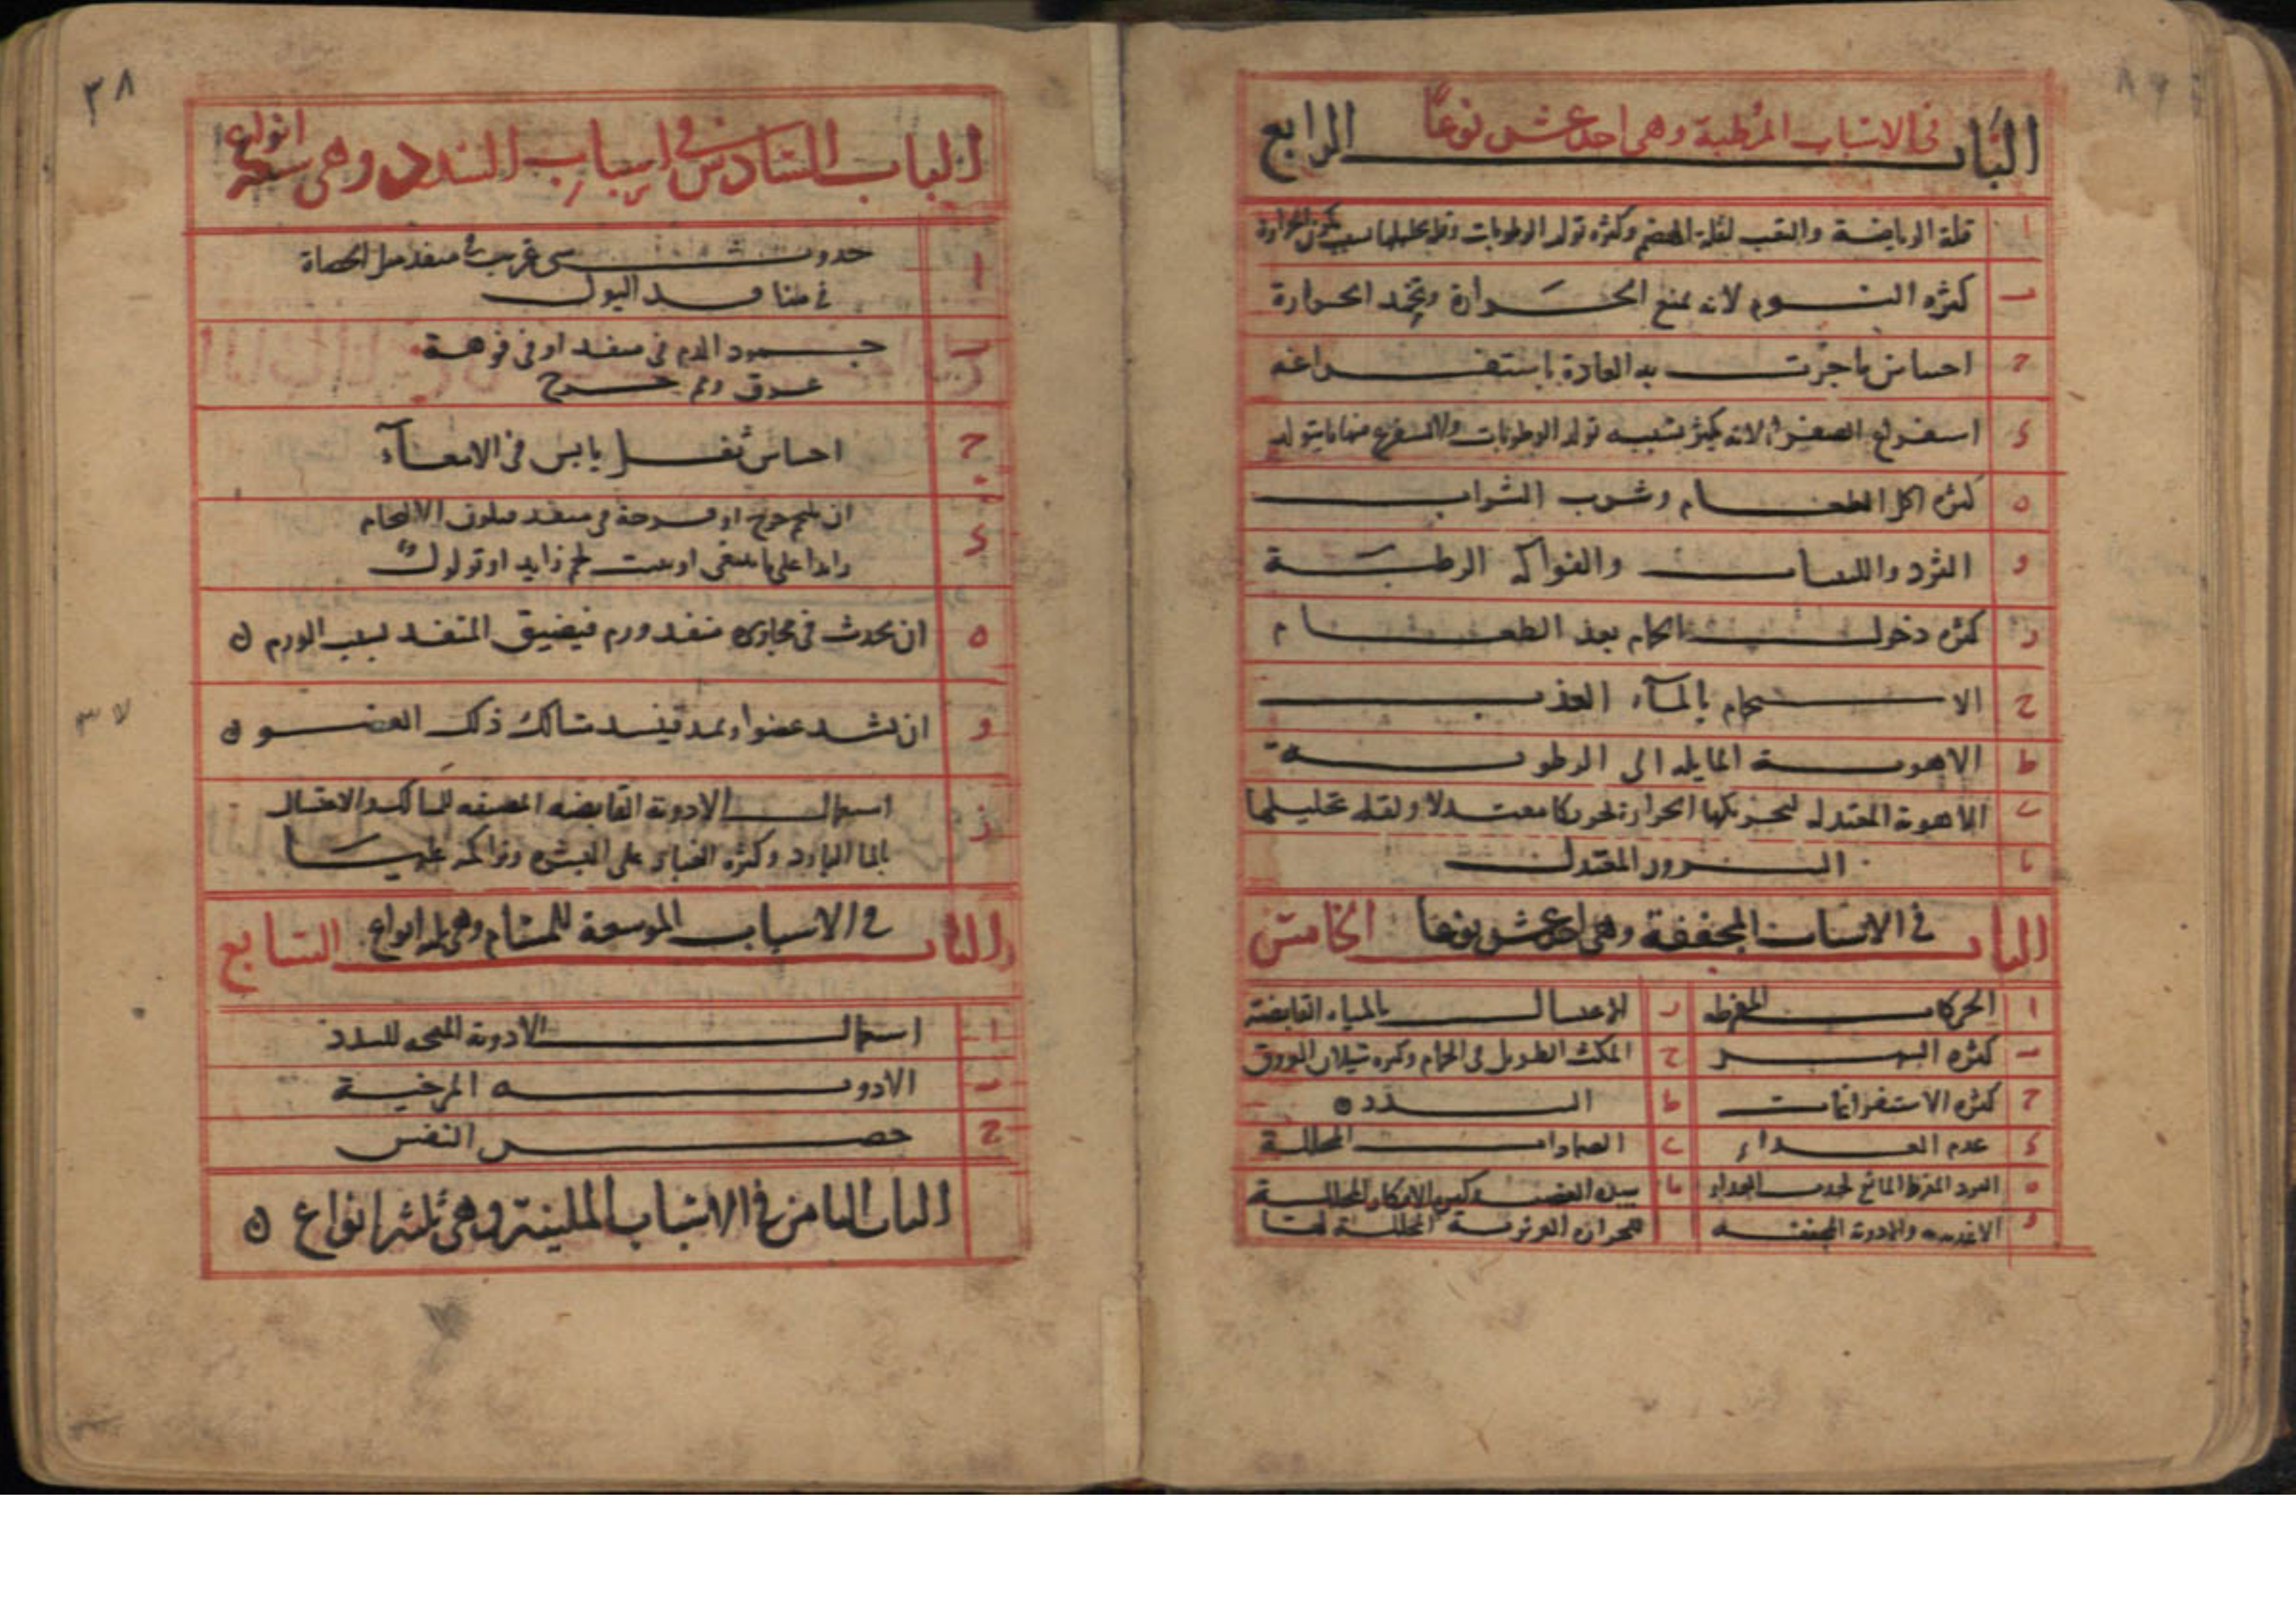 الباب الرابع في الاسباب المرطبة وهي احد عشر نوعًا
ا قلة الرياضة والتعب لقلة الهضم وكثرة تولد الرطوبات وقلة تحليلها بسبب سكون الحرارة
ب كثرة النوم لانه يمنع الحرارة ويخمد الحرارة
ج احساس ما جرت به العادة باستفراغه
د استفراغ الصفراء لانه يكثر بسببه تولد الرطوبات ولا يستفرغ منها ما يتولد
ه كثرة اكل الطعام وشرب الشراب
و الثرد واللبنيات والفواكه الرطبة
ز كثرة دخول الحمام بعد الطعام
ح الاستحمام بالمآء العذب
ط الاهوية المايله الى الرطوبة
ي الاهوية المعتدله لتحريكها الحرارة تحريكا معتدلا ولقلة تحليلها
يا السرور المعتدل
الباب الخامس في الاسباب المجففة وهي احد عشر نوعا
ا الحركات المفرطه
ب كثرة السهر
ج كثرة الاستفراغات
د عدم الغداء
ه البرد المفرط المانع لجذب الغداء
و الاغديه والادوية المجففه
ز الاغتسال بالمياه القابضة
ح المكث الطويل في الحمام وكثره سيلان العرق
ط السدد
ي الضمادات المحللة
يا شدة الغضب وكثرة الافكار المحللة
للحرارة الغريزية المحللة لها
٣٨
الباب السادس في اسباب السدد وهي سبعة انواع
ا حدوث شي غريب في منفذ مثل الحصاة
في منافد البول
ب جمود الدم في منفد او في فوهة
عرق وفم جرح
ج احساس ثفل يابس في الامعآء
د ان يلتحم جرح او قرحة في منفد فيكون الالتحام
زايدا على ما ينبغي او ينبت لحم زايد او تولول
ه ان يحدث في مجاري منفد ورم فيضيق المنفد لسبب الورم
و ان يشد عضوا ويمد فينسد مسالك ذلك العضو
ز استعمال الادوية القابضه المضيقه للمسالك والاغتسال
بالما البارد وكثرة الغبار على البشرة وتراكمه عليها
الباب السابع في الاسباب الموسعة للمسام وهي ثلثة انواع
ا استعمال الادوية المفتحه للسدد
ب الادويه المرخية
ج حصر النفس
الباب الثامن في الاسباب الملينة وهي ثلثة انواع